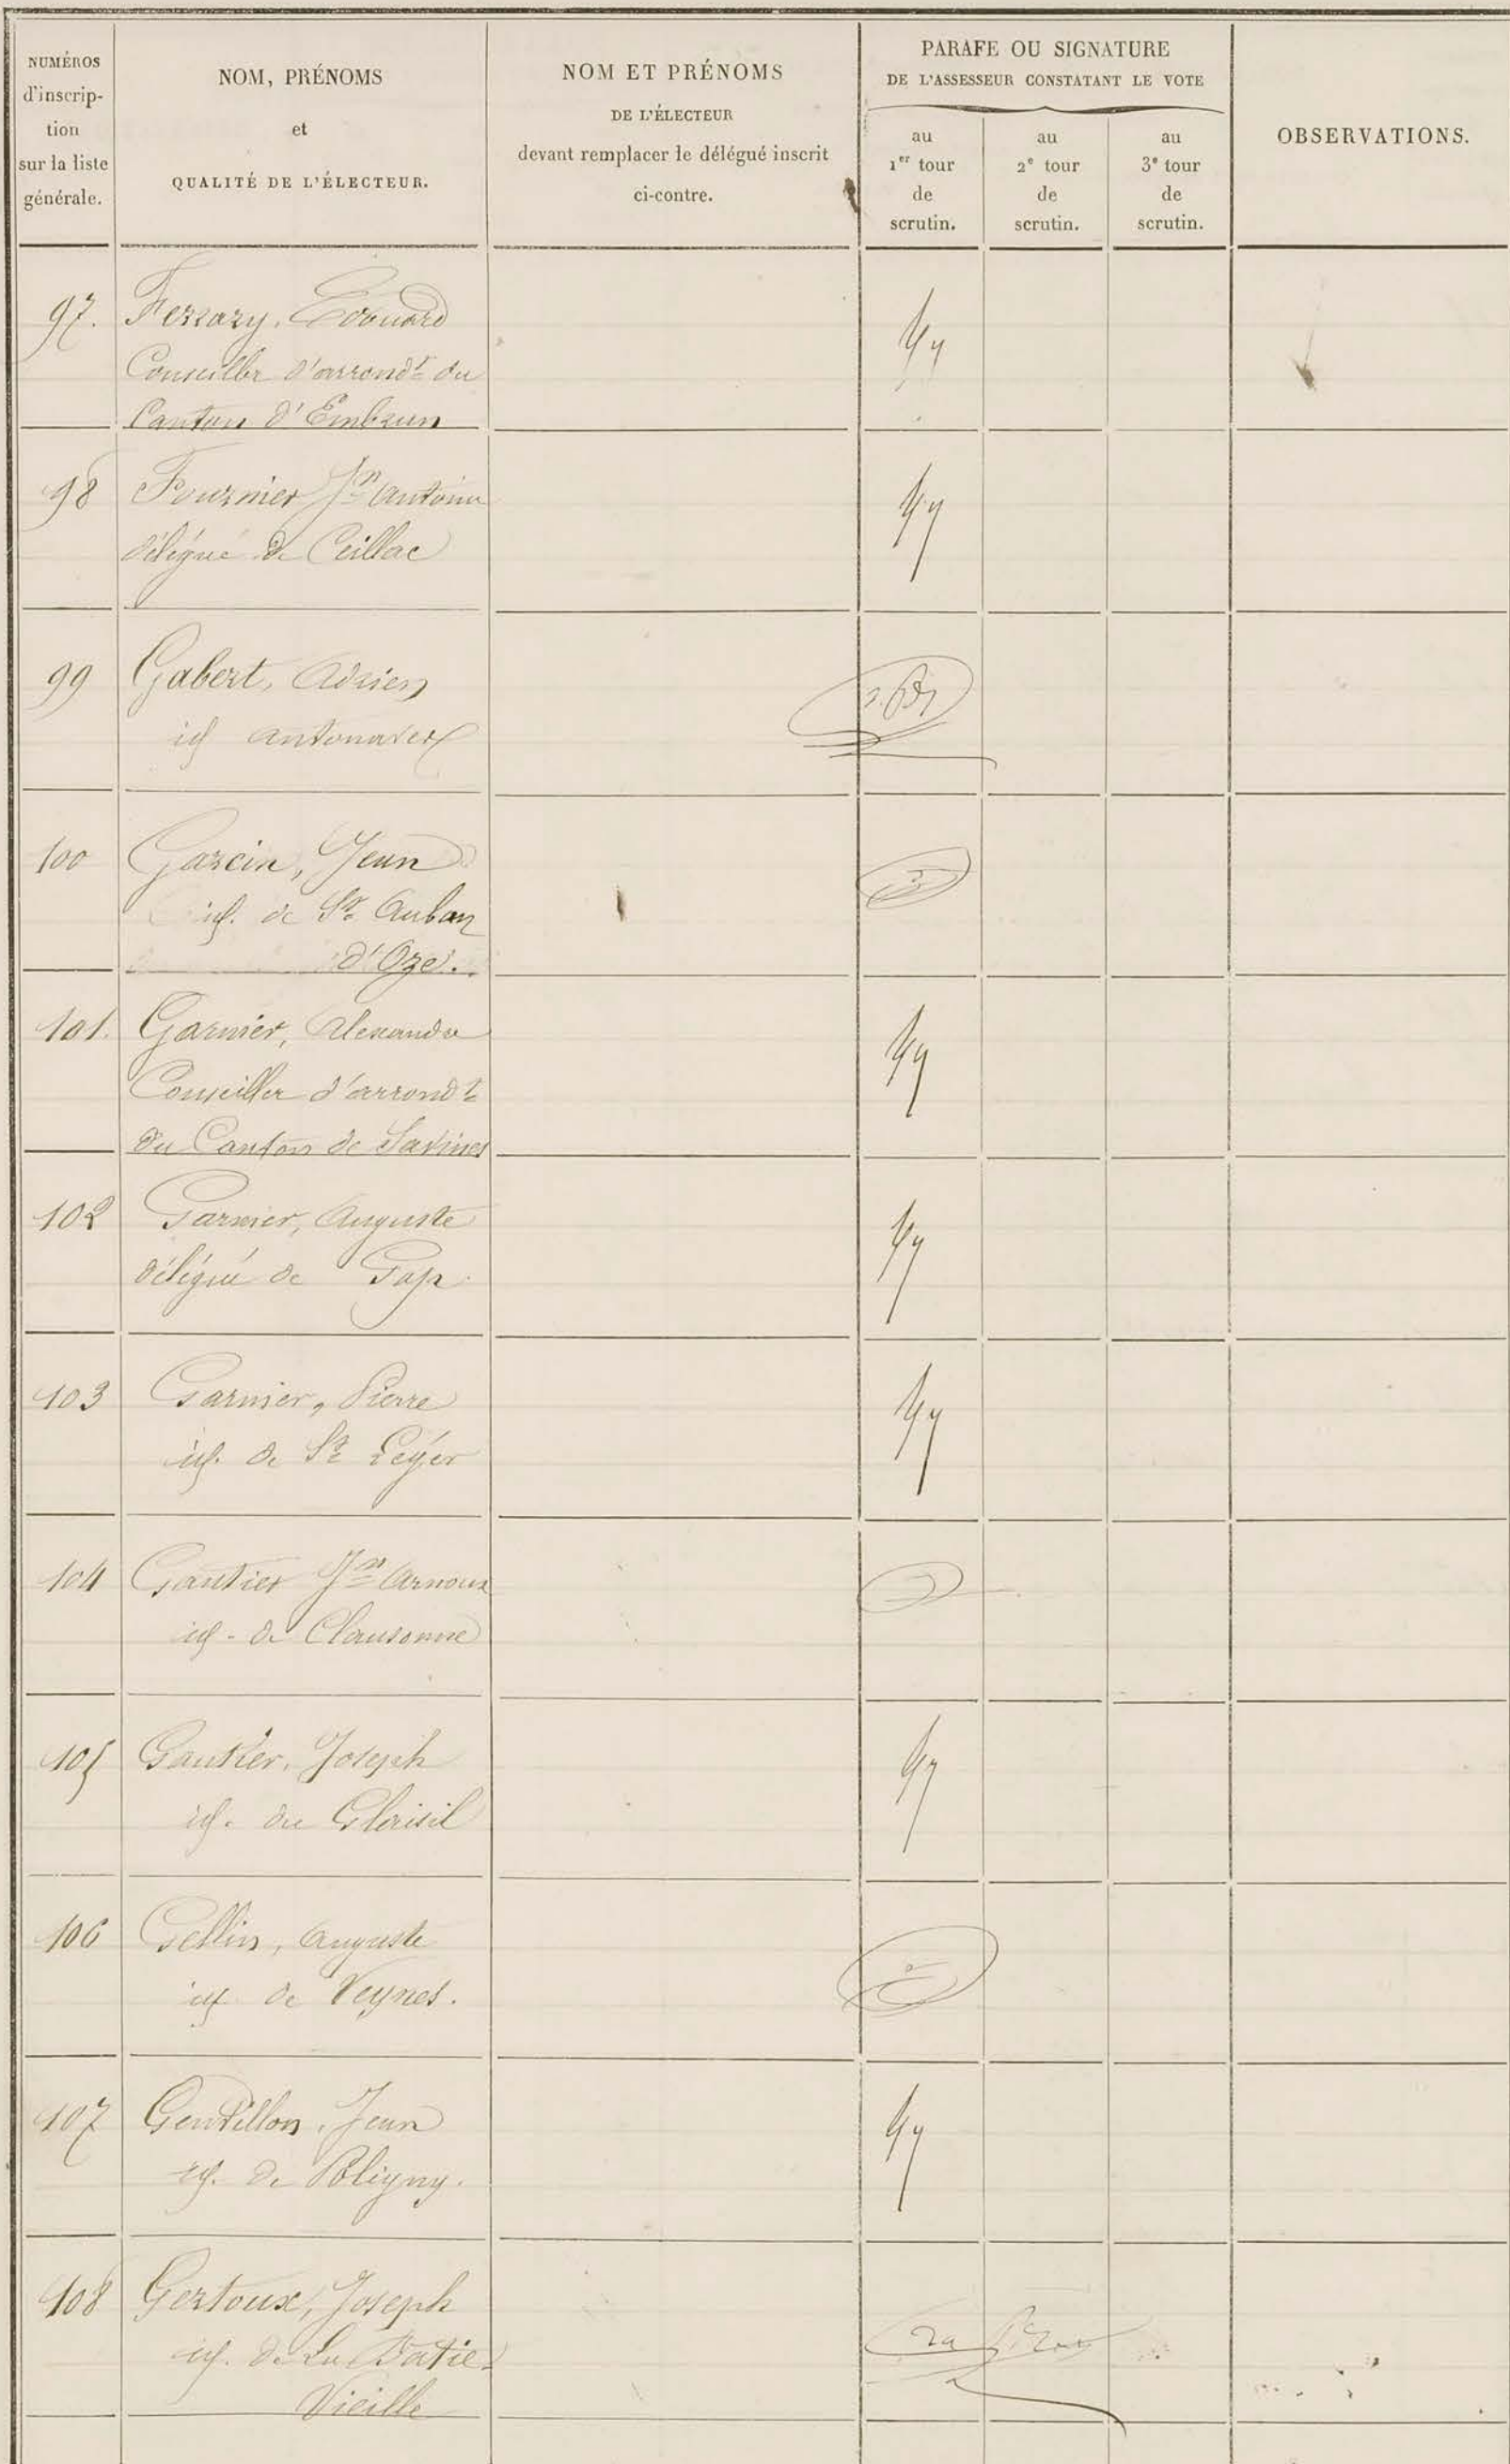 NUMÉROS
d'inscrip-
tion
sur la liste
générale.
NOM, PRÉNOMS
et
QUALITÉ DE L'ÉLECTEUR.
NOM ET PRÉNOMS
DE L'ÉLECTEUR
devant remplacer le délégué inscrit
ci-contre.
PARAFE OU SIGNATURE
DE L'ASSESSEUR CONSTATANT LE VOTE
au
1er tour
de
scrutin.
au
2e tour
de
scrutin.
au
3e tour
de
scrutin.
OBSERVATIONS.
97. Ferrary, Edouard
Conseiller d'arrondt du
Canton d'Embrun
98 Fournier Jn Antoine
délégué de Ceillac
99 Gabert, Adrien
id antonaves
100 Garcin, Jean
id. de St Auban
d'Oze.
101. Garnier, Alexandre
Conseiller d'arrondt
du Canton de Savines
102 Garnier, Auguste
délégué de Gap.
103 Garnier, Pierre
id. de St Léger
104 Gautier Jn Arnoux
id. de Clausonne
105 Gautier, Joseph
id. du Glaisil
106 Gellin, Auguste
id de Veynes.
107 Gentillon, Jean
id. de Poligny.
108 Gertoux, Joseph
id. de La Batie-
Vieille